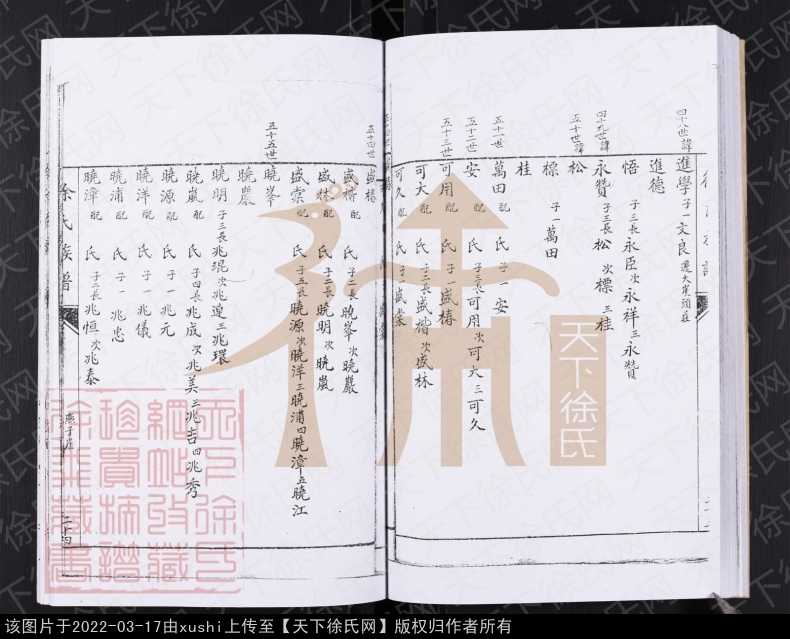 四十八世諱
進學 子一 文良 遷大崔頭莊
進德
悟 子三長 永臣 次 永祥 三 永贊
四十九世諱
永贊 子三長 松 次 標 三 桂
五十世諱
松
標 子一 萬田
桂
五十一世
萬田 配 氏 子一 安
五十二世
安 配 氏 子三長 可用 次 可大 三 可久
五十三世
可用 配 氏 子一 盛椿
可大 配 氏 子二長 盛楷 次 盛林
可久 配 氏 子一 盛棠
五十四世
盛椿
盛楷 配 氏 子二長 曉峯 次 曉巖
盛林 配 氏 子二長 曉明 次 曉嵐
盛棠 配 氏 子五長 曉源 次 曉洋 三 曉浦 四 曉漳 五 曉江
五十五世
曉峯
曉巖
曉明 子三長 兆琨 次 兆連 三 兆環
曉嵐 配 氏 子四長 兆成 次 兆美 三 兆吉 四 兆秀
曉源 配 氏 子一 兆元
曉洋 配 氏 子一 兆儀
曉浦 配 氏 子一 兆忠
曉漳 配 氏 子二長 兆恒 次 兆泰
徐氏族譜
二十四
天下徐氏
天下徐氏网
该图片于2022-03-17由xushi上传至【天下徐氏网】版权归作者所有